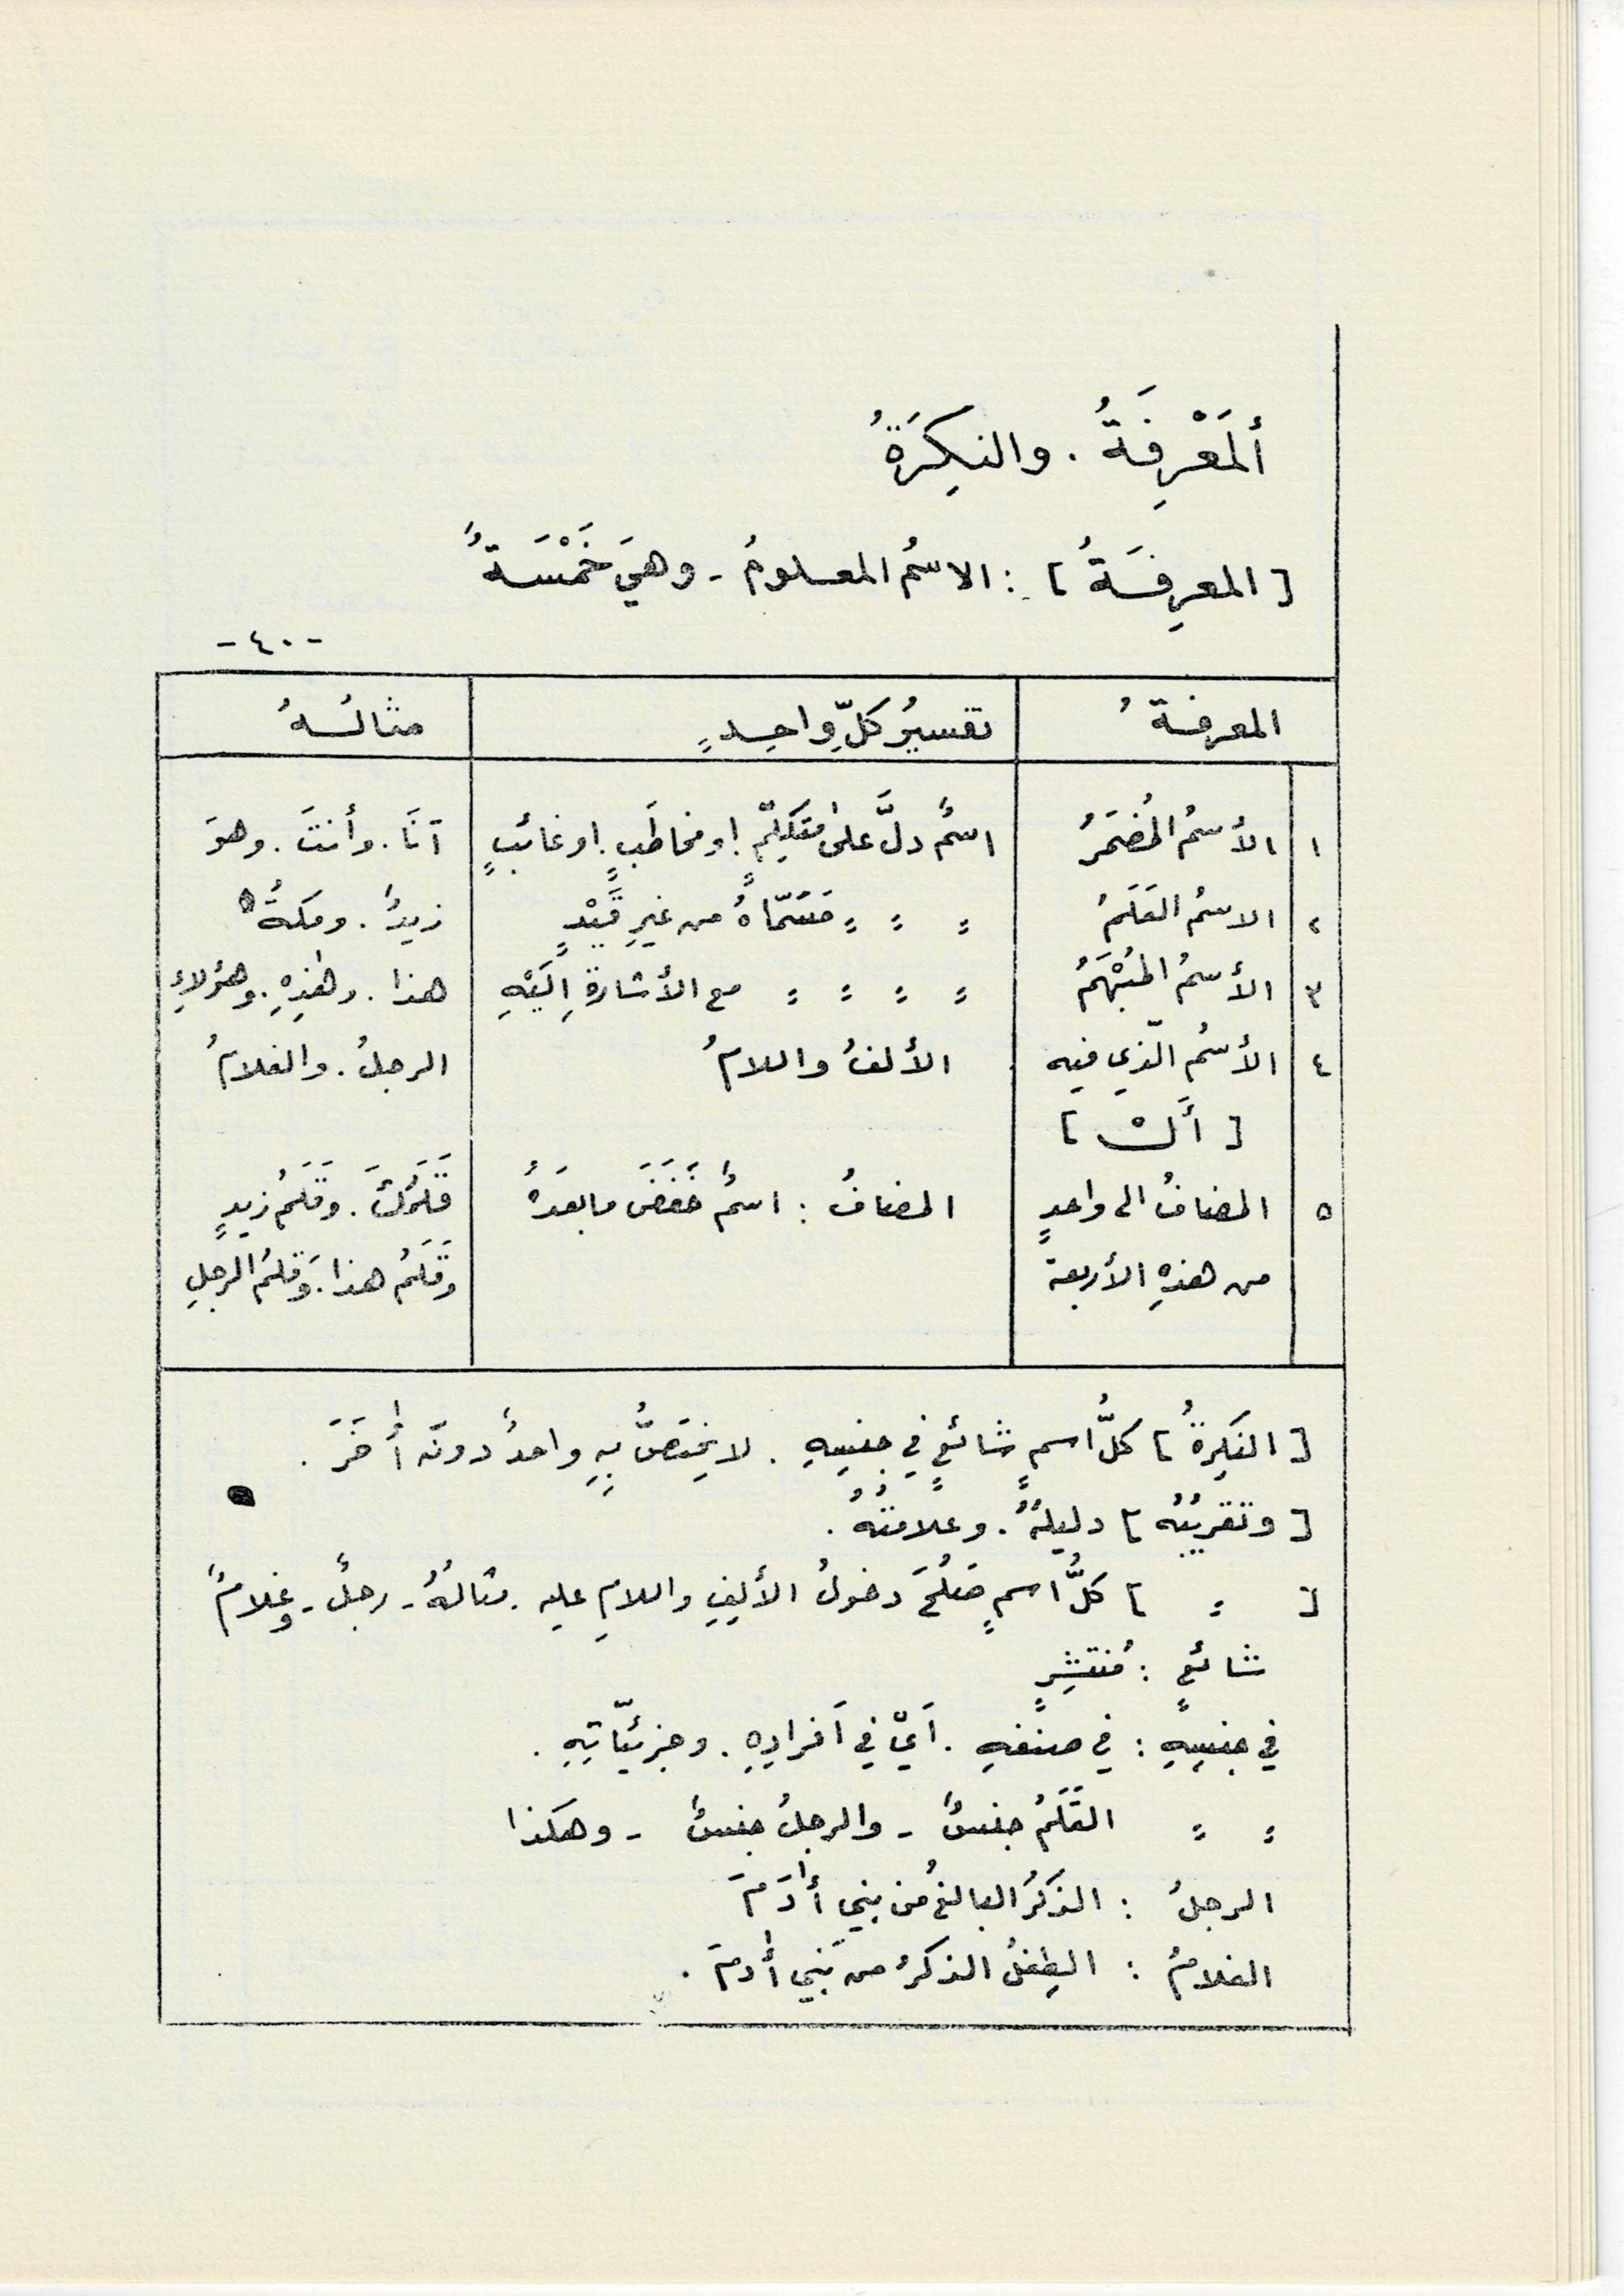 أَلمَعْرِفَةُ . والنكِرَةُ
[ المعرِفَةُ ] : الاسمُ المعلومُ - وهيَ خَمْسَةٌ
-٤٠-
المعرفةُ | تفسيرُ كلِّ واحِدٍ | مثالُهُ
١ | الأسمُ المُضمَرُ | اسمٌ دلَّ على مُتَكلِّمٍ . او مخاطَبٍ . او غائبٍ | أَنَا . وأنتَ . وهوَ
٢ | الاسمُ العَلَمُ | = = = مُسَمّاهُ من غيرِ قَيْدٍ | زيدٌ . ومكةُ
٣ | الأسمُ المُبْهَمُ | = = = = مع الأشارةِ اِلَيْهِ | هذا . وهٰذِهِ . وهؤلاءِ
٤ | الأسمُ الّذي فيه | الألفُ واللامُ | الرجلُ . والغلامُ
[ أَلْ ]
٥ | المضافُ الى واحدٍ | المضافُ : اسمٌ خَفَضَ ما بعدَهُ | قَلَمُكَ . وَقَلَمُ زيدٍ
من هذهِ الأربعة | وقَلَمُ هذا . وَقلمُ الرجلِ
[ النكِرةُ ] كلُّ اسمٍ شائعٍ في جنسِهِ . لا يختصُّ بِهِ واحدٌ دونَ أٰخَرَ .
[ وتقريبُهُ ] دليلُهُ . وعلامتُهُ .
[ = ] كلُّ اسمٍ صَلُحَ دخولُ الألِفِ واللامِ عليه . مثالُهُ - رجلٌ - وغلامٌ
شائعٍ : مُنتشِرٍ
في جنسِهِ : في صنفِهِ . أَيْ في اَفرادِهِ . وجزئيّاتِهِ .
= = القَلَمُ جنسٌ - والرجلُ جنسٌ - وهكذا
الرجلُ : الذكَرُ البالغُ من بني أٰدَمَ
الغلامُ : الطِفلُ الذكرُ من بَني أٰدمَ .